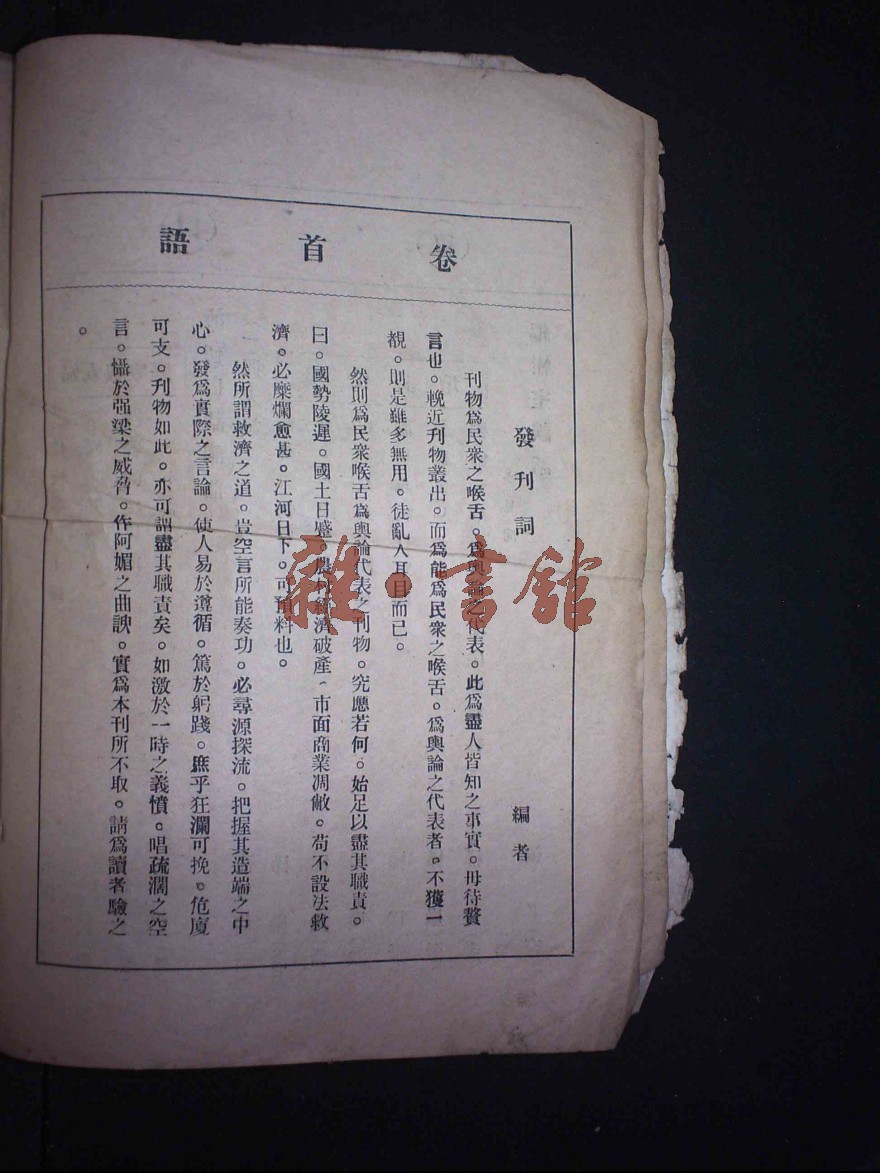 卷首語
發刊詞 編者
刊物爲民衆之喉舌。爲輿論之代表。此爲盡人皆知之事實。毋待贅
言也。晚近刊物叢出。而爲能爲民衆之喉舌。爲輿論之代表者。不獲一
覩。則是雖多無用。徒亂人耳目而已。
然則爲民衆喉舌爲輿論代表之刊物。究應若何。始足以盡其職責。
曰。國勢陵遲。國土日蹙。農村經濟破產、市面商業凋敝。苟不設法救
濟。必糜爛愈甚。江河日下。可預料也。
然所謂救濟之道。豈空言所能奏功。必尋源探流。把握其造端之中
心。發爲實際之言論。使人易於遵循。篤於躬踐。庶乎狂瀾可挽。危廈
可支。刋物如此。亦可謂盡其職責矣。如激於一時之義憤。唱疏濶之空
言。懾於强梁之威脅。作阿媚之曲諛。實爲本刊所不取。請爲讀者驗之
。
雜·書舘